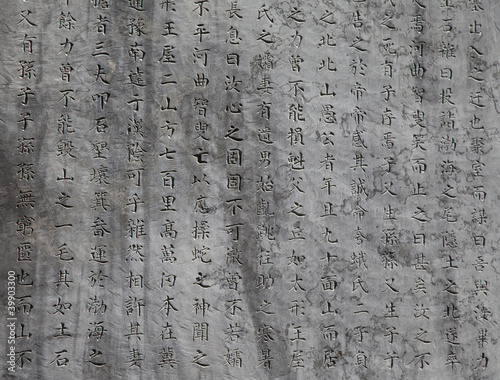 出入之迂也聚室而謀曰吾與汝畢力
石雜曰投諸渤海之尾隱土之北遂率
焉河曲智叟笑而止之曰甚矣汝之不
之死有子存焉子又生孫孫又生子子
告之於帝帝感其誠命夸娥氏二子負
之北北山愚公者年且九十面山而居
之力曾不能損魁父之丘如太形王屋
氏之孀妻有遺男始齔跳往助之寒暑
長息曰汝心之固固不可徹曾不若孀
不平河曲智叟亡以應操蛇之神聞之
形王屋二山方七百里高萬仞本在冀
豫南達于漢陰可乎雜然相許其妻
擔者三夫叩石墾壤箕畚運於渤海之
餘力曾不能毀山之一毛其如土石
又有孫子子孫孫無窮匱也而山不
39903300
Adobe Stock